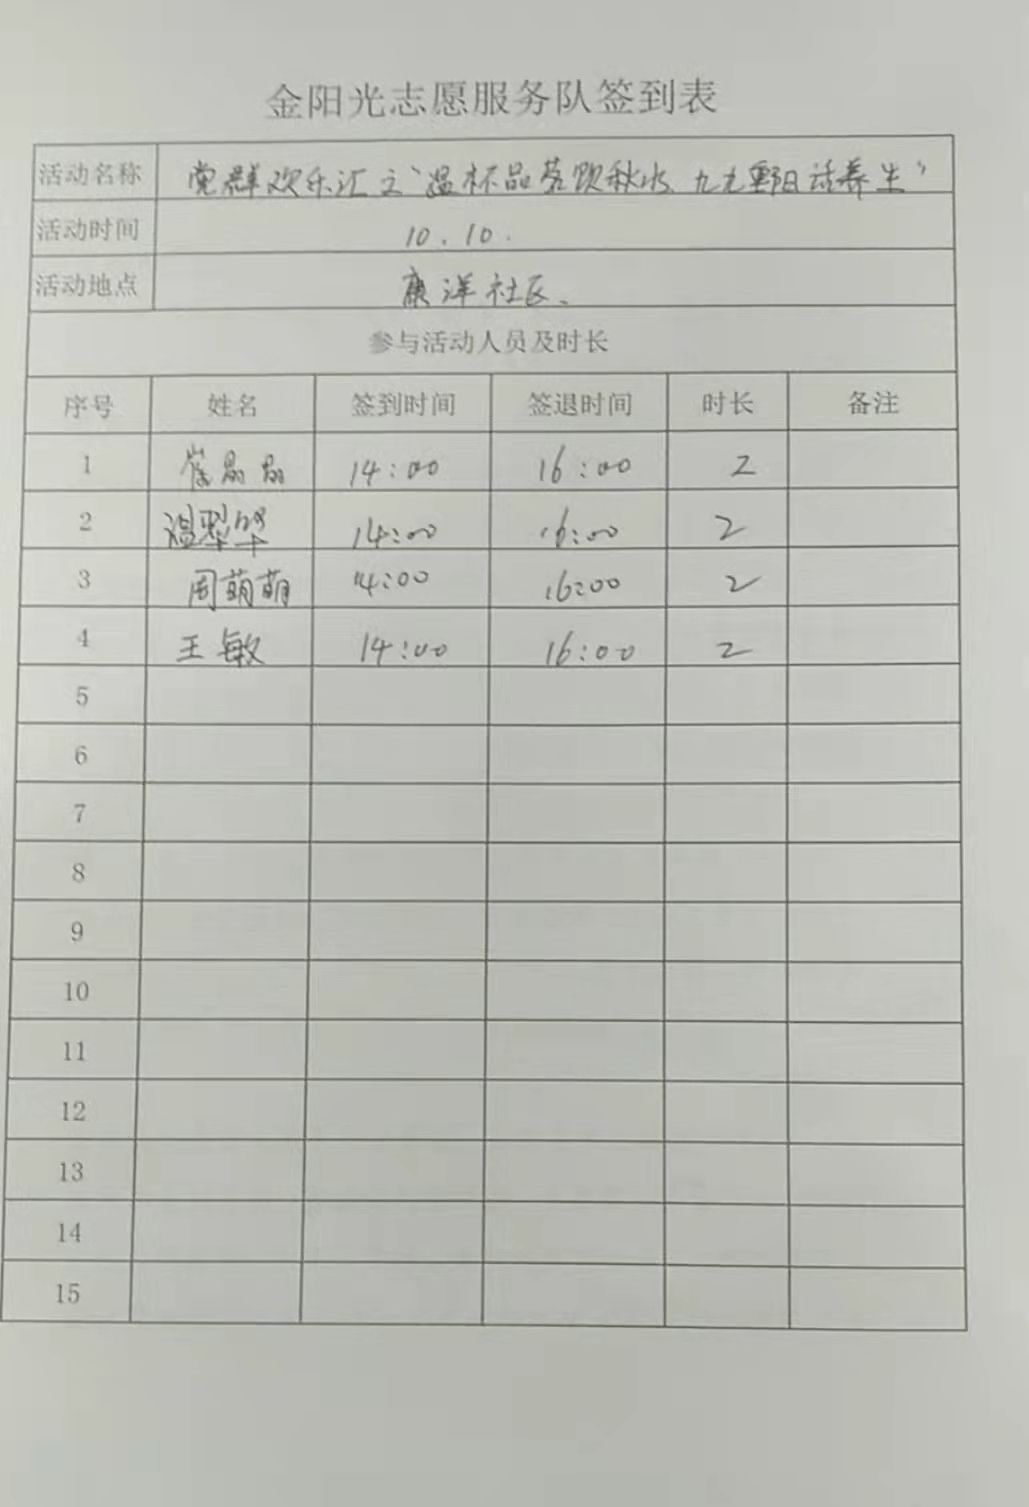 金阳光志愿服务队签到表
活动名称 党群欢乐汇之“温杯品茗饮秋水 九九重阳话养生”
活动时间 10.10.
活动地点 康洋社区、
参与活动人员及时长
序号 姓名 签到时间 签退时间 时长 备注
1 崔晶晶 14:00 16:00 2
2 温翠华 14:00 16:00 2
3 周萌萌 14:00 16:00 2
4 王敏 14:00 16:00 2
5
6
7
8
9
10
11
12
13
14
15